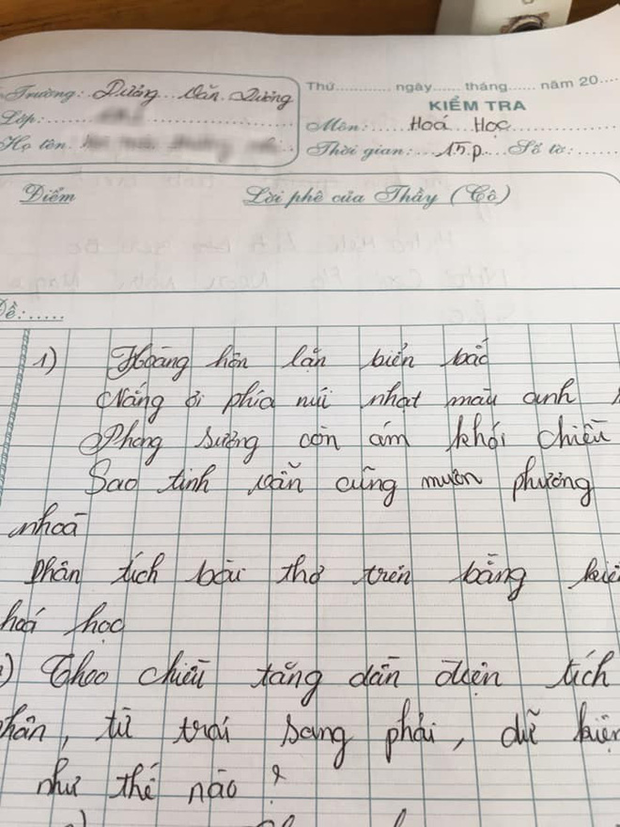 Trường: Dưỡng Văn Dương
Thứ............ ngày...... tháng...... năm 20....
KIỂM TRA
Lớp:
Môn: Hoá Học
Họ tên:
Thời gian: 15p Số tờ:
Điểm
Lời phê của Thầy (Cô)
Đề:......
1) Hoàng hôn lặn biển bắc
Nắng ở phía núi nhạt màu anh
Phong sương còn ám khói chiều
Sao tinh vẫn cũng muôn phương
nhoà
Phân tích bài thơ trên bằng
hoá học
) Theo chiều tăng dần điện tích
hân, từ trái sang phải, dữ kiện
như thế nào?